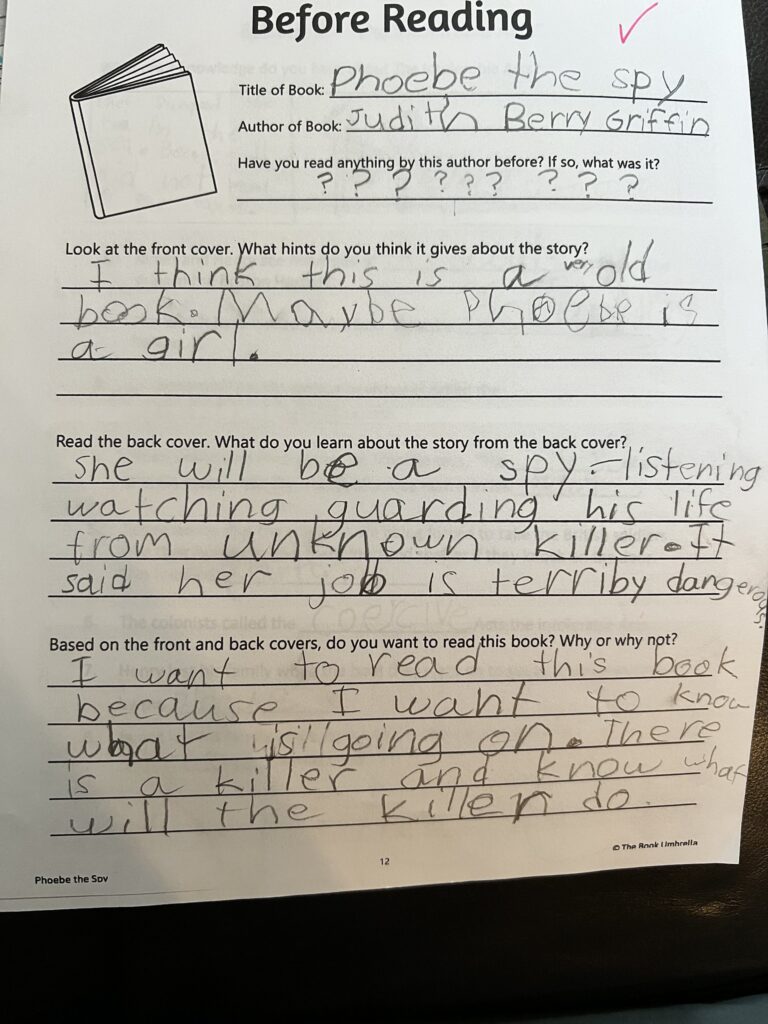 Before Reading
Title of Book: Phoebe the spy
Author of Book: Judith Berry Griffin
Have you read anything by this author before? If so, what was it?
? ? ? ? ? ? ? ? ?
Look at the front cover. What hints do you think it gives about the story?
I think this is a very old
book. Maybe Phoebe is
a girl.
Read the back cover. What do you learn about the story from the back cover?
she will be a spy-listening
watching guarding his life
from unknown killer. It
said her job is terriby dangerous.
Based on the front and back covers, do you want to read this book? Why or why not?
I want to read this book
because I want to know
what is going on. There
is a killer and know what
will the killer do.
© The Book Umbrella
12
Phoebe the Spy